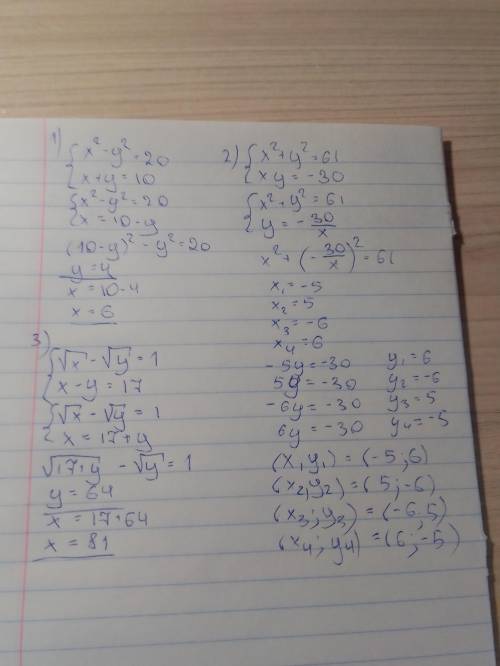 1)
x² - y² = 20
x + y = 10
x² - y² = 20
x = 10 - y
(10 - y)² - y² = 20
y = 4
x = 10 - 4
x = 6
2)
x² + y² = 61
xy = -30
x² + y² = 61
y = - 30/x
x² + (- 30/x)² = 61
x₁ = -5
x₂ = 5
x₃ = -6
x₄ = 6
-5y = -30 y₁ = 6
5y = -30 y₂ = -6
-6y = -30 y₃ = 5
6y = -30 y₄ = -5
(x, y₁) = (-5; 6)
(x₂, y₂) = (5; -6)
(x₃; y₃) = (-6, 5)
(x₄; y₄) = (6; -5)
3)
√x - √y = 1
x - y = 17
√x - √y = 1
x = 17 + y
√17+y - √y = 1
y = 64
x = 17 + 64
x = 81